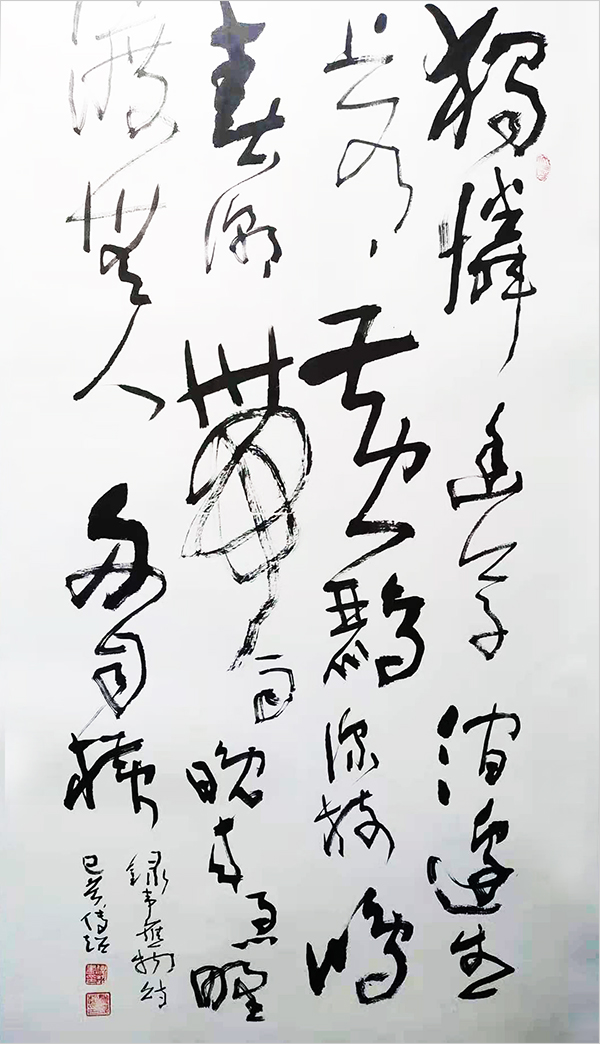 獨憐幽草澗邊生
上有黃鸝深樹鳴
春潮帶雨晚來急野
渡無人舟自橫
錄韋應物詩
己亥